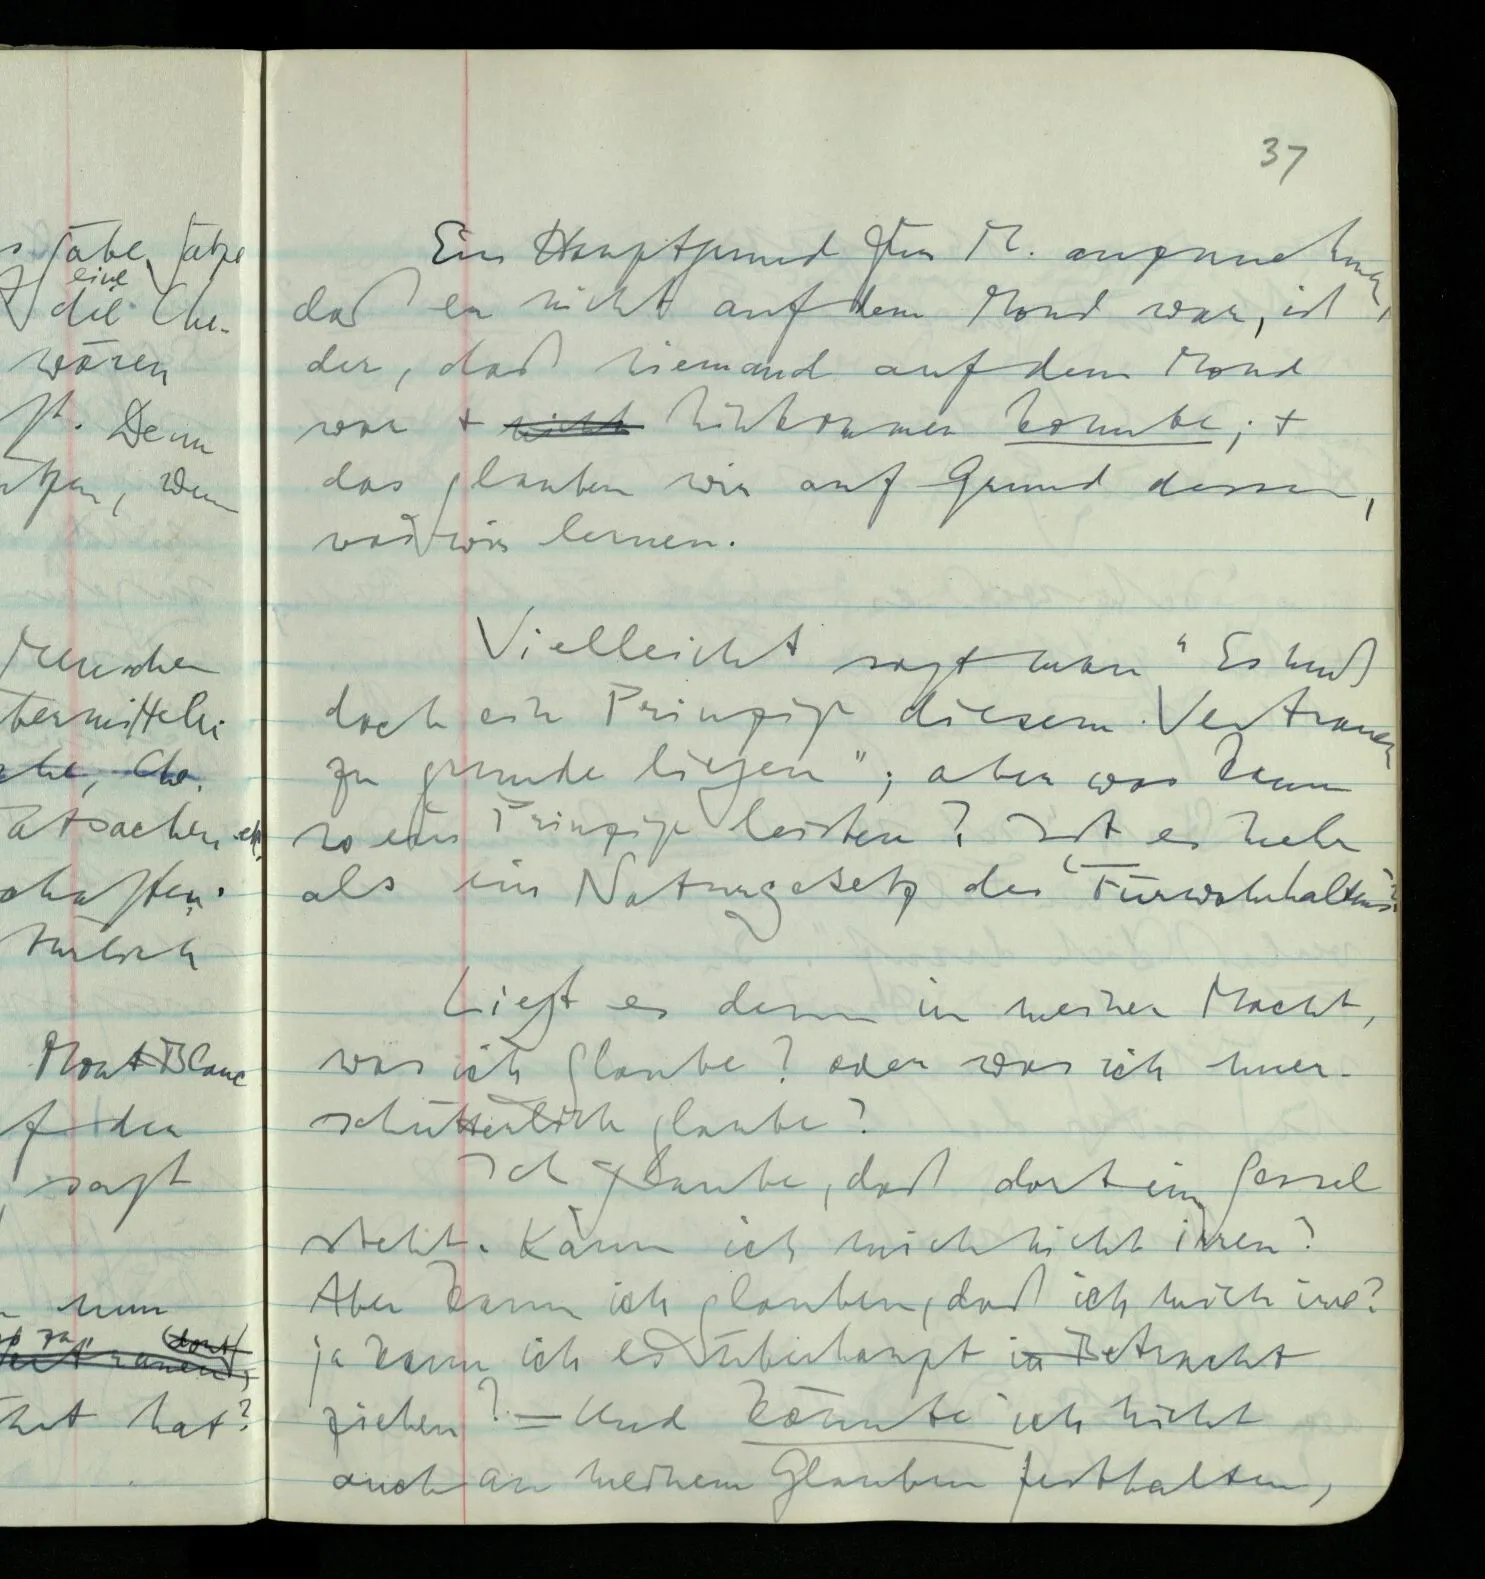 s gäbe, Sätze
eine
die Che-
wären
ist. Denn
tzen, wenn
Menschen
übermitteln
Tatsachen etc.
schaften.
türlich
Mont Blanc
auf den
sagt
nun
hat?
37
Ein Hauptgrund für M. anzunehmen,
daß er nicht auf dem Mond war, ist
der, daß niemand auf dem Mond
war + nicht hinkommen konnte; +
das glauben wir auf Grund dessen,
was wir lernen.
Vielleicht sagt man "Es muß
doch ein Prinzip diesem Vertrauen
zu grunde liegen"; aber was kann
so ein Prinzip leisten? Ist es mehr
als ein Naturgesetz des 'Fürwahrhaltens'?
Liegt es denn in meiner Macht,
was ich glaube? oder was ich uner-
schütterlich glaube?
Ich glaube, daß dort ein Sessel
steht. Kann ich mich nicht irren?
Aber kann ich glauben, daß ich mich irre?
ja kann ich es überhaupt in Betracht
ziehen? – Und könnte ich nicht
auch an meinem Glauben festhalten,